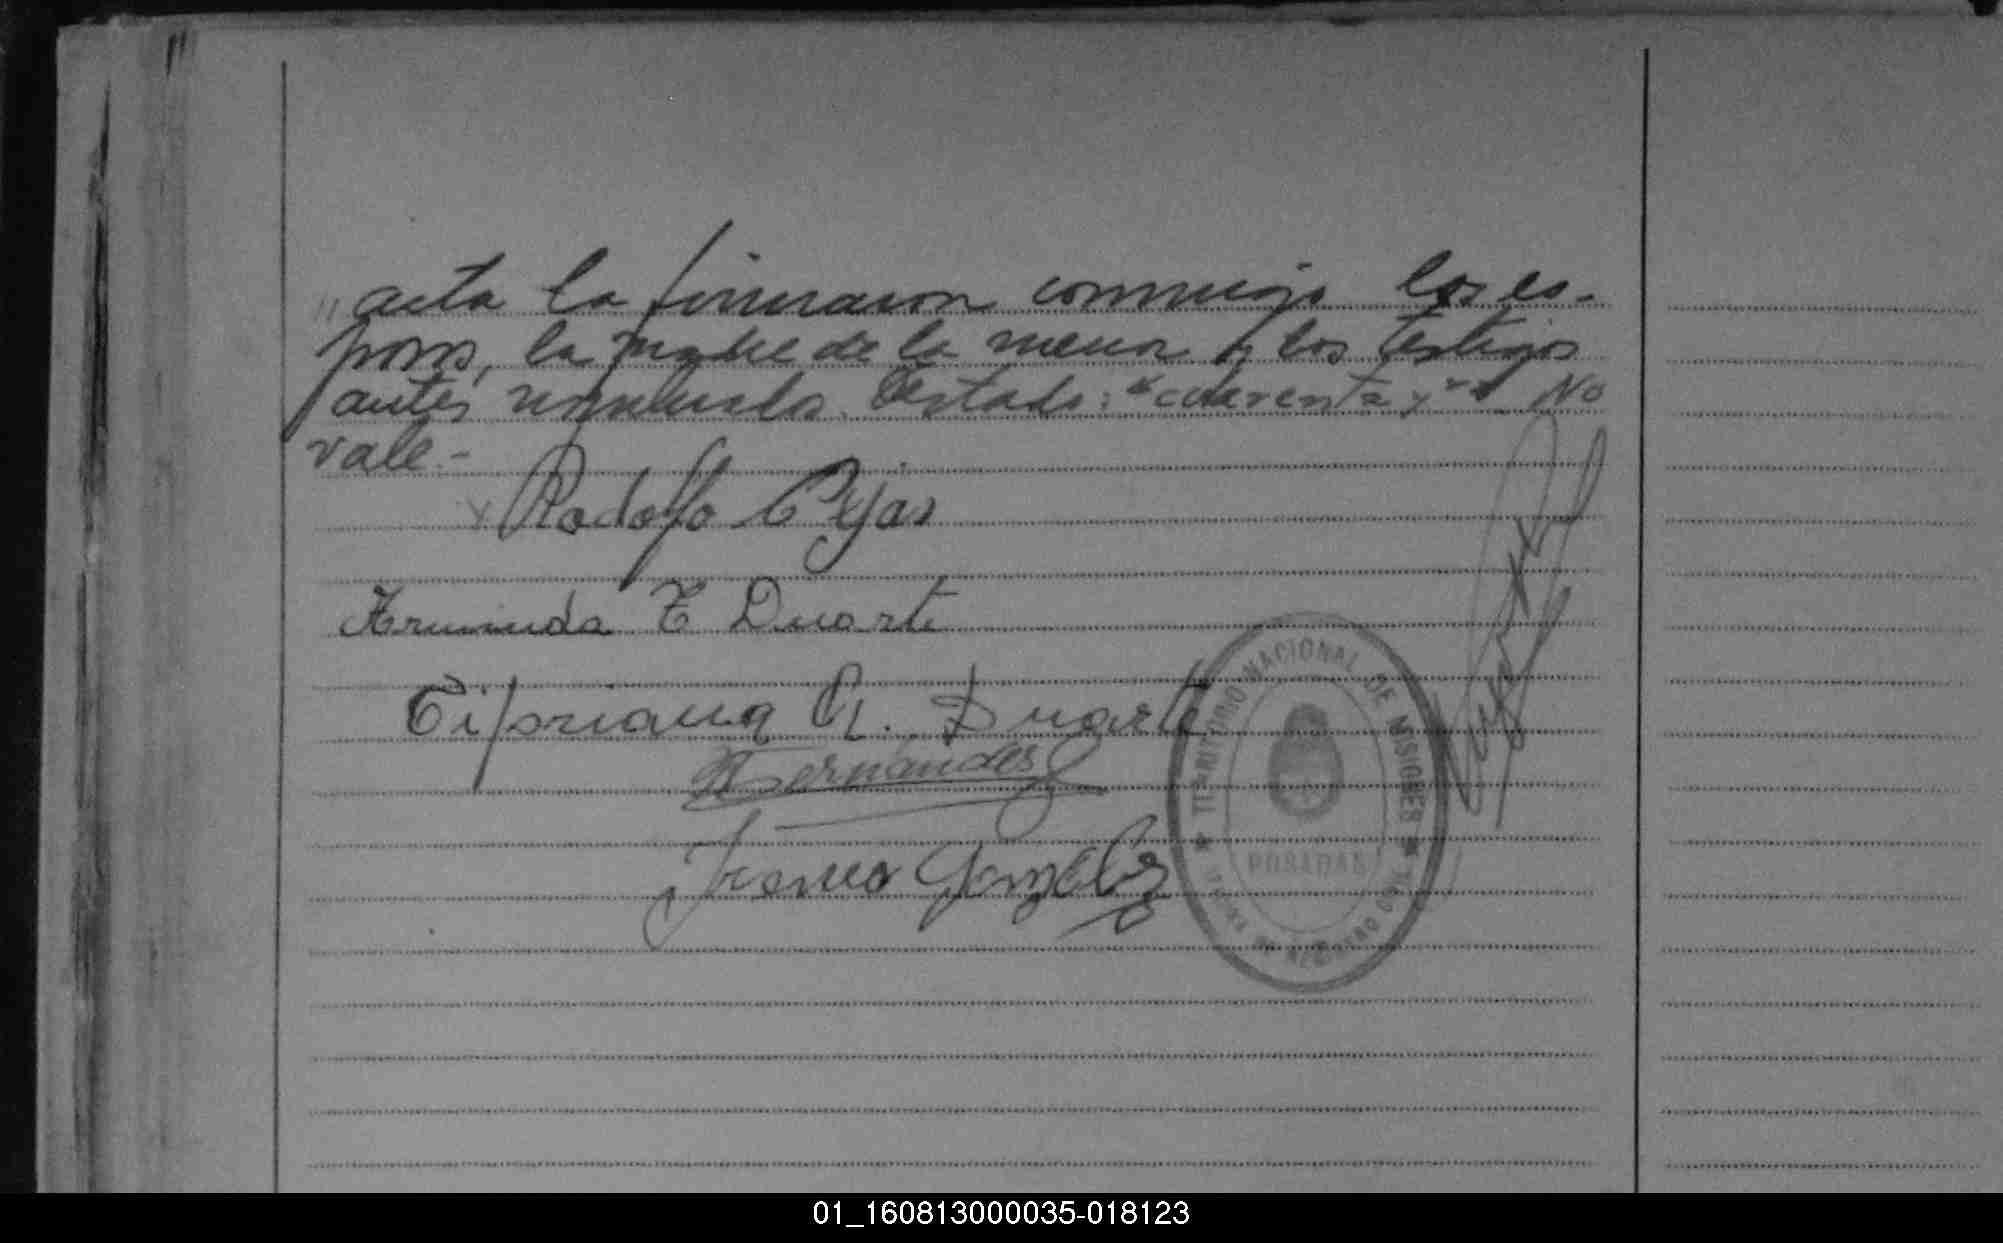 "acta la firmaron conmigo los es-
posos, la madre de la menor y los testigos
antes nombrados. Testado: "cuarenta y" No
vale.-
Rodolfo Cejas
Arminda E Duarte
Cipriana G. Duarte
Hernández
González
TERRITORIO NACIONAL DE MISIONES
POSADAS
01_160813000035-018123